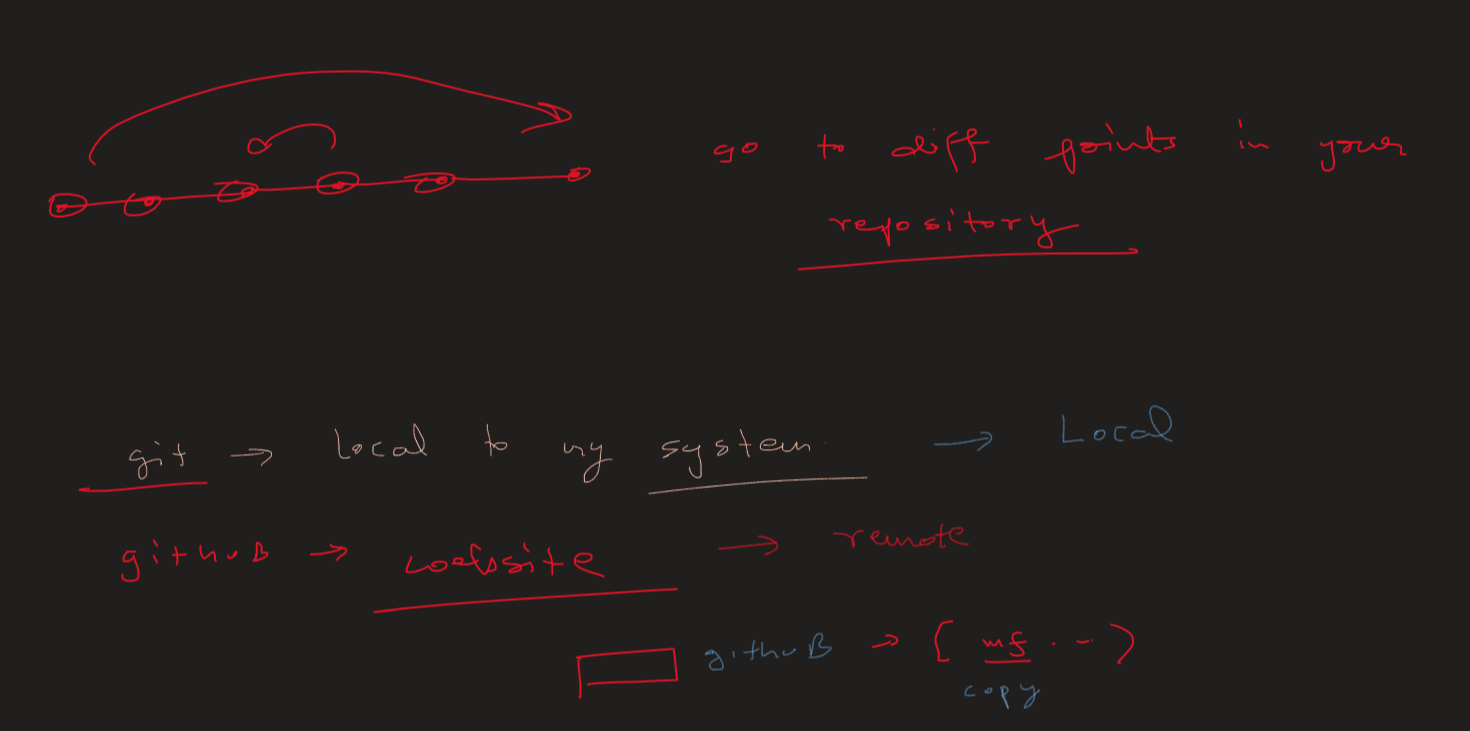 go to diff points in your
repository
git → Local to my system → Local
github → website → remote
github → ( mf . - )
copy